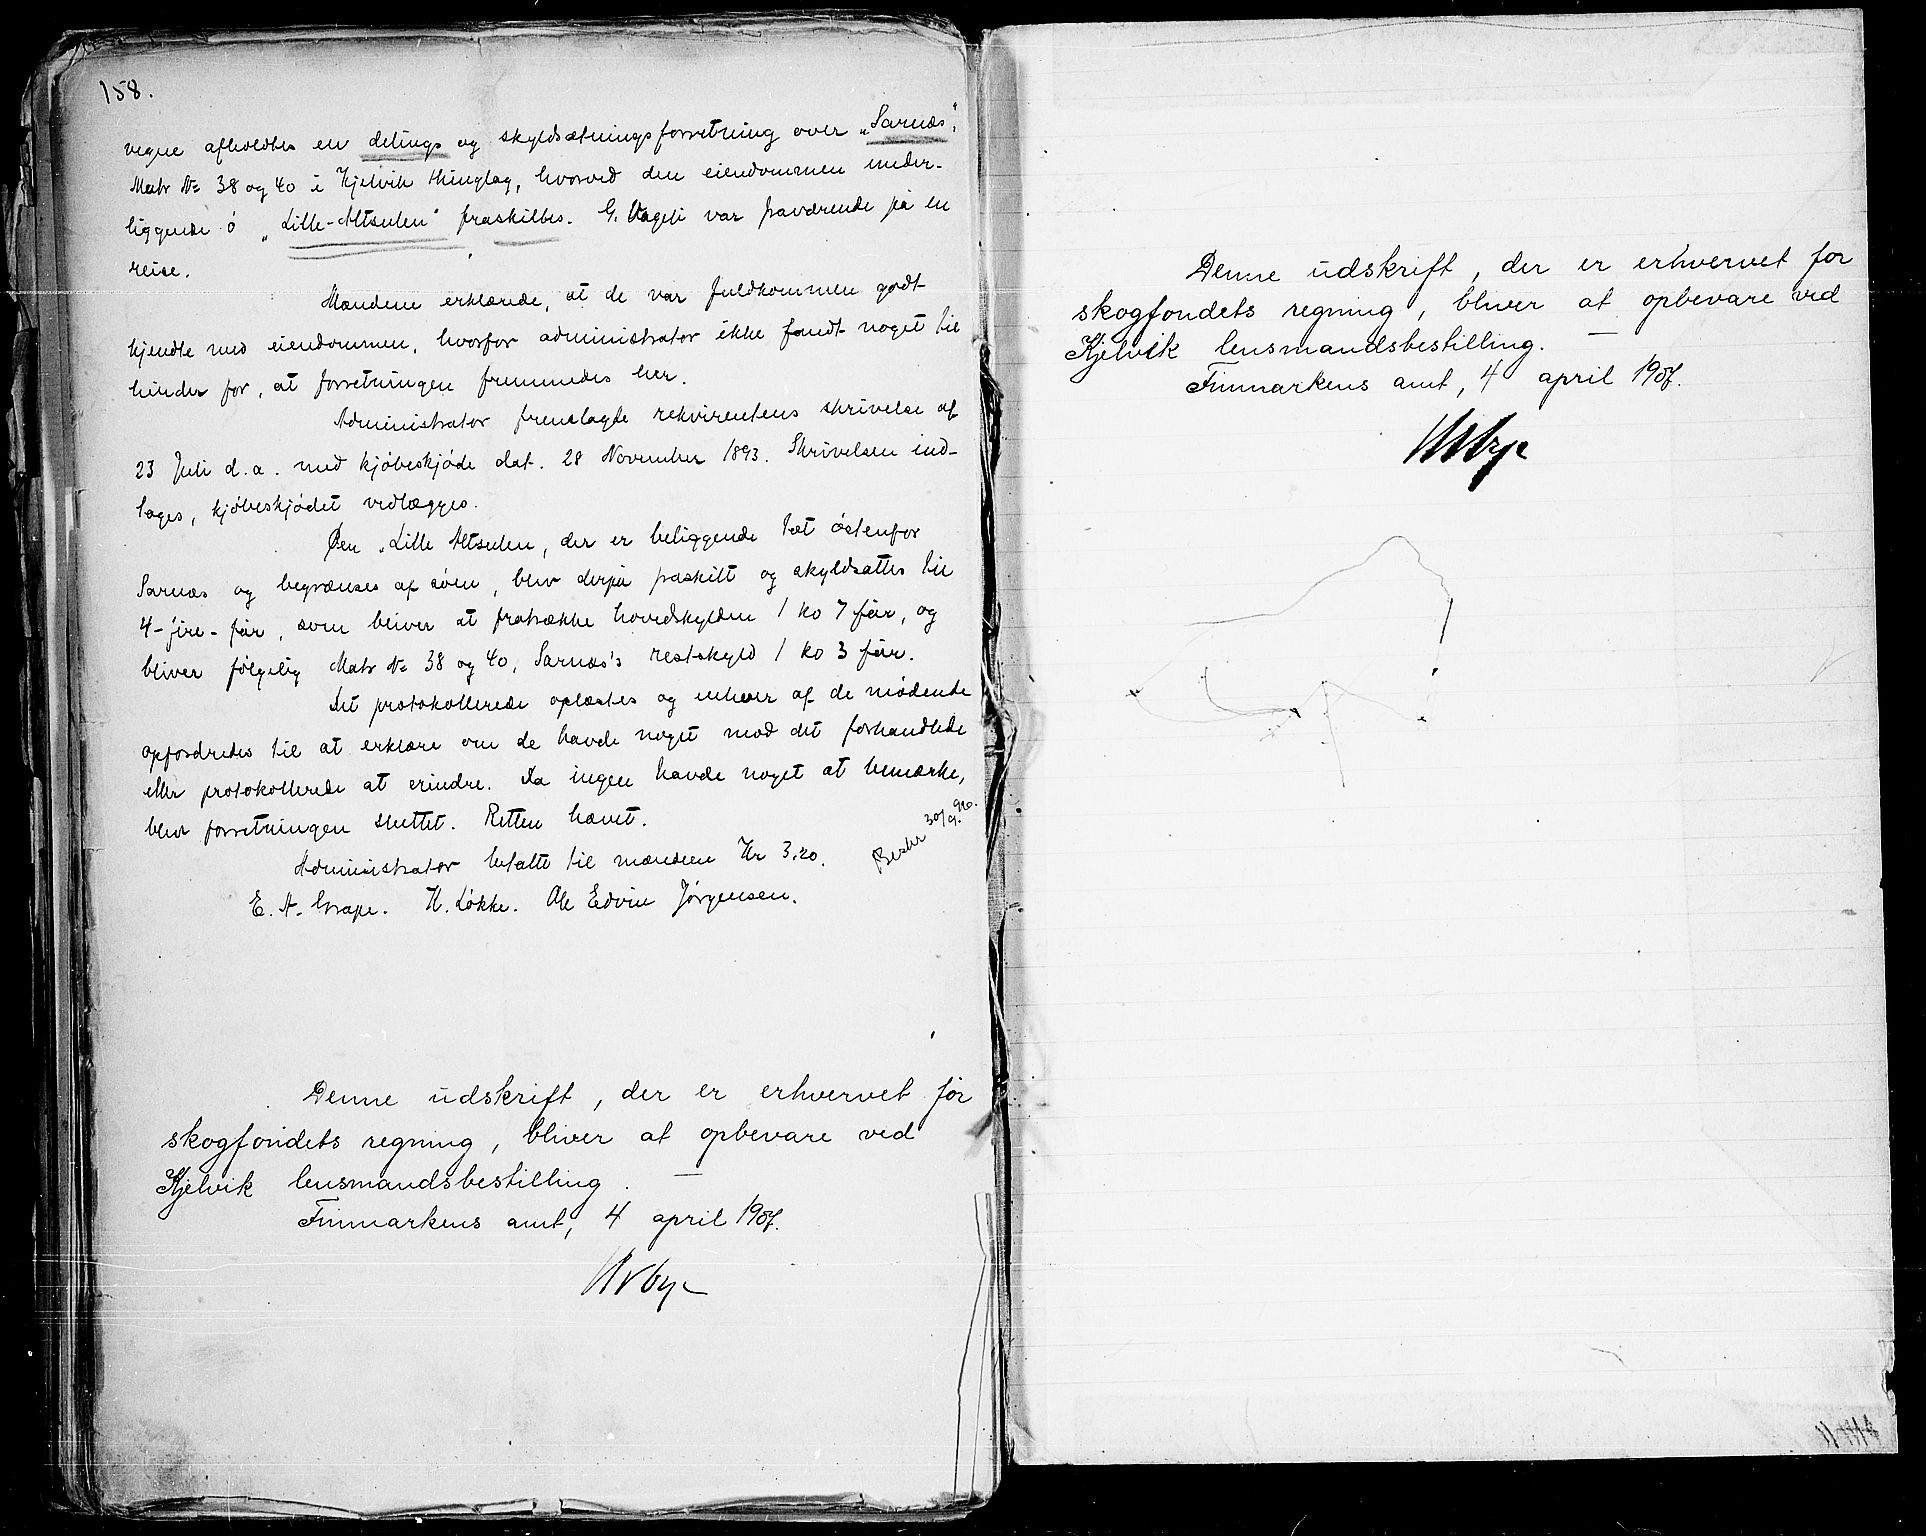 158.
vegne afholdtes en delings og skyldsætningsforretning over „Sarnæs",
Matr № 38 og 40 i Kjelvik thinglag, hvorved den eiendommen under-
liggende ö „Lille-Altsulen" fraskiltes. G. Vageli var fraværende på en
reise.
Mændene erklærede, at de var fuldkommen godt
kjendte med eiendommen, hvorfor administrator ikke fandt noget til
hinder for, at forretningen fremmedes her.
Administrator fremlagde rekvirentens skrivelse af
23 Juli d.a. med kjöbeskjöde dat. 28 November 1893. Skrivelsen ind-
tages, kjöbeskjödet vedlægges.
Øen „Lille Altsulen, der er beliggende tæt östenfor
Sarnæs og begrænses af söen, blev derpå fraskilt og skyldsattes til
4-fire-får, som bliver at fratrække hovedskylden 1 ko 7 får, og
bliver fölgelig Matr № 38 og 40, Sarnæs's restskyld 1 ko 3 får.
Det protokollerede oplæstes og enhver af de mödende
opfordredes til at erklære om de havde noget mod det forhandlede
eller protokollerede at erindre. Da ingen havde noget at bemærke,
blev forretningen sluttet. Retten hævet.
Administrator betalte til mændene Kr 3,20.
Beskr 30/9.96.
E. A. Grape. H. Lökke. Ole Edvin Jørgensen.
Denne udskrift, der er erhvervet for
skogfondets regning, bliver at opbevare ved
Kjelvik lensmandsbestilling. —
Finmarkens amt, 4 april 1907.
Urbye
Denne udskrift, der er erhvervet for
skogfondets regning, bliver at opbevare ved
Kjelvik lensmandsbestilling. —
Finmarkens amt, 4 april 1907.
Urbye